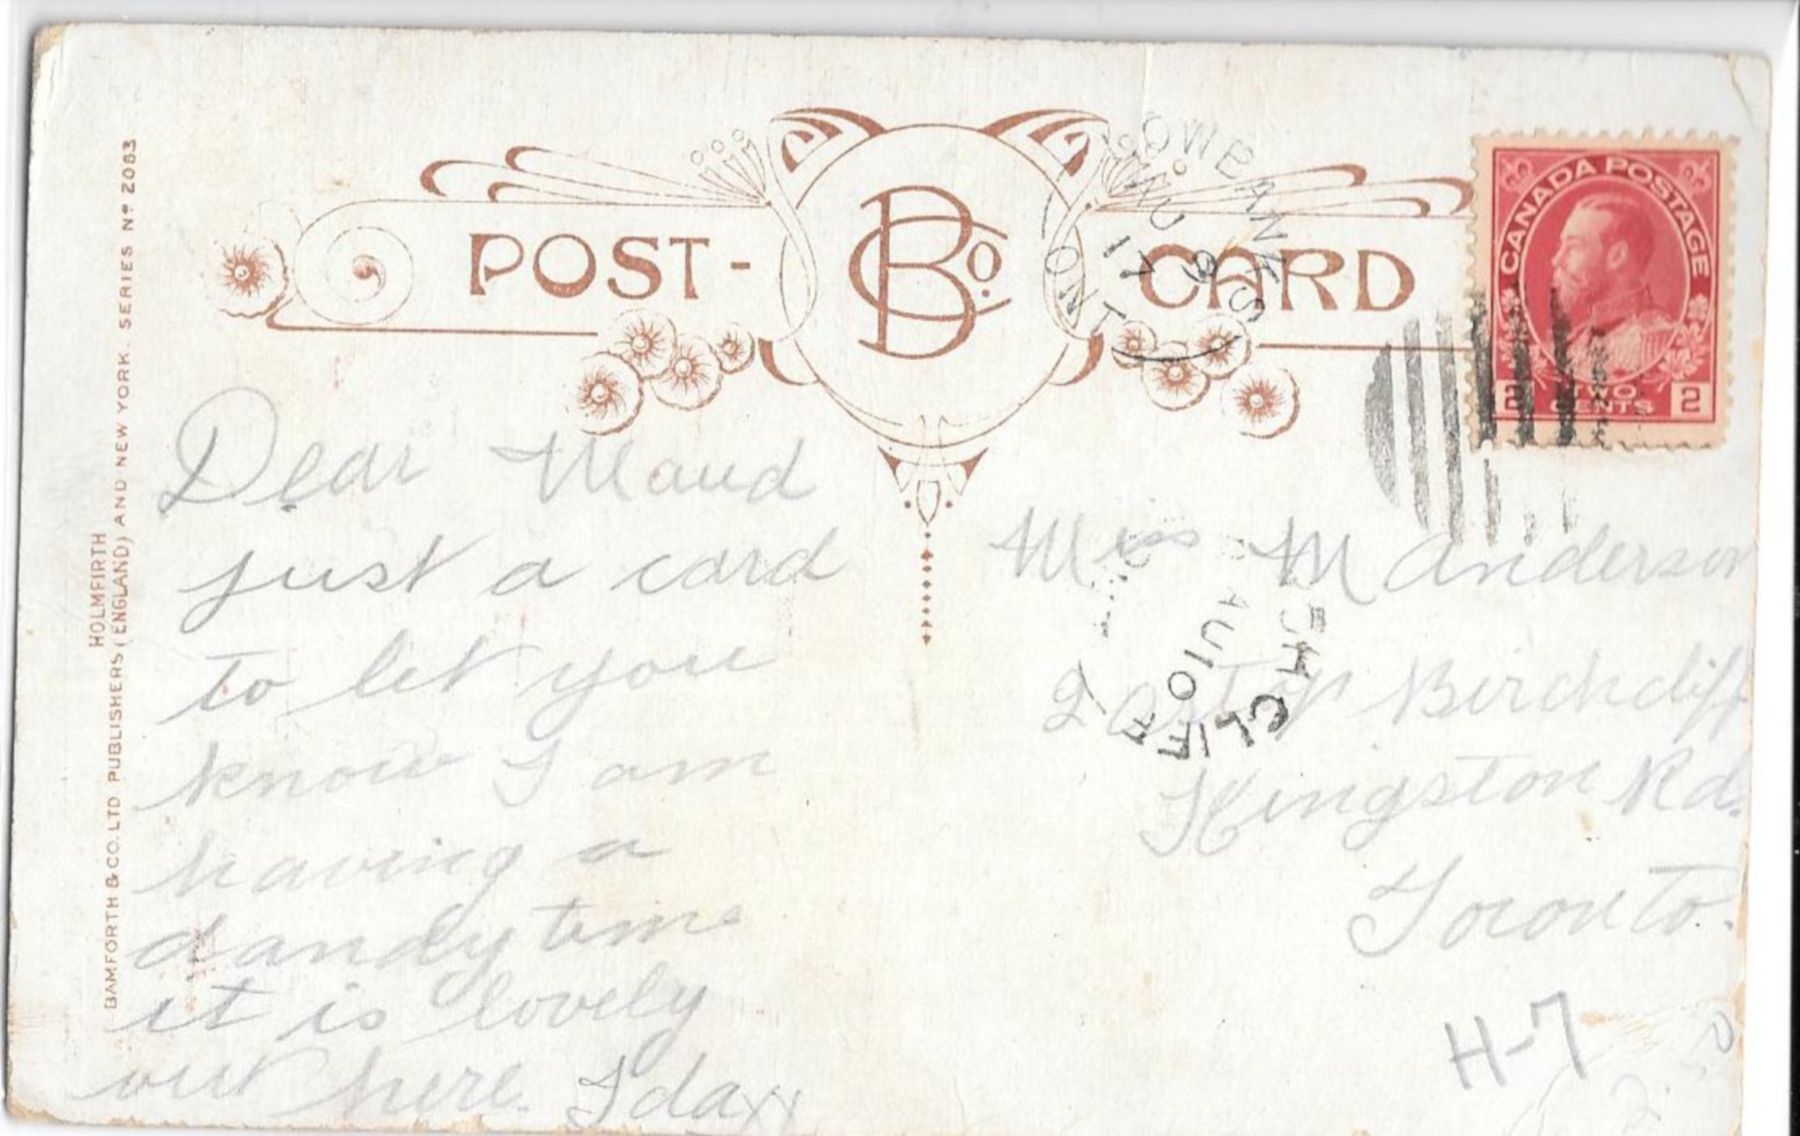 POST-CARD
BCo.
CANADA POSTAGE
2 TWO CENTS 2
OWBANKS
AU 9
17
ONT
HOLMFIRTH
BAMFORTH & CO. LTD PUBLISHERS (ENGLAND) AND NEW YORK. SERIES Nº 2083
Dear Maud
just a card
to let you
know I am
having a
dandy time
it is lovely
out here. Ida xx
Miss M Anderson
Birchcliff
Kingston Rd.
Toronto.
CHCLIFF
AU 10
H-7